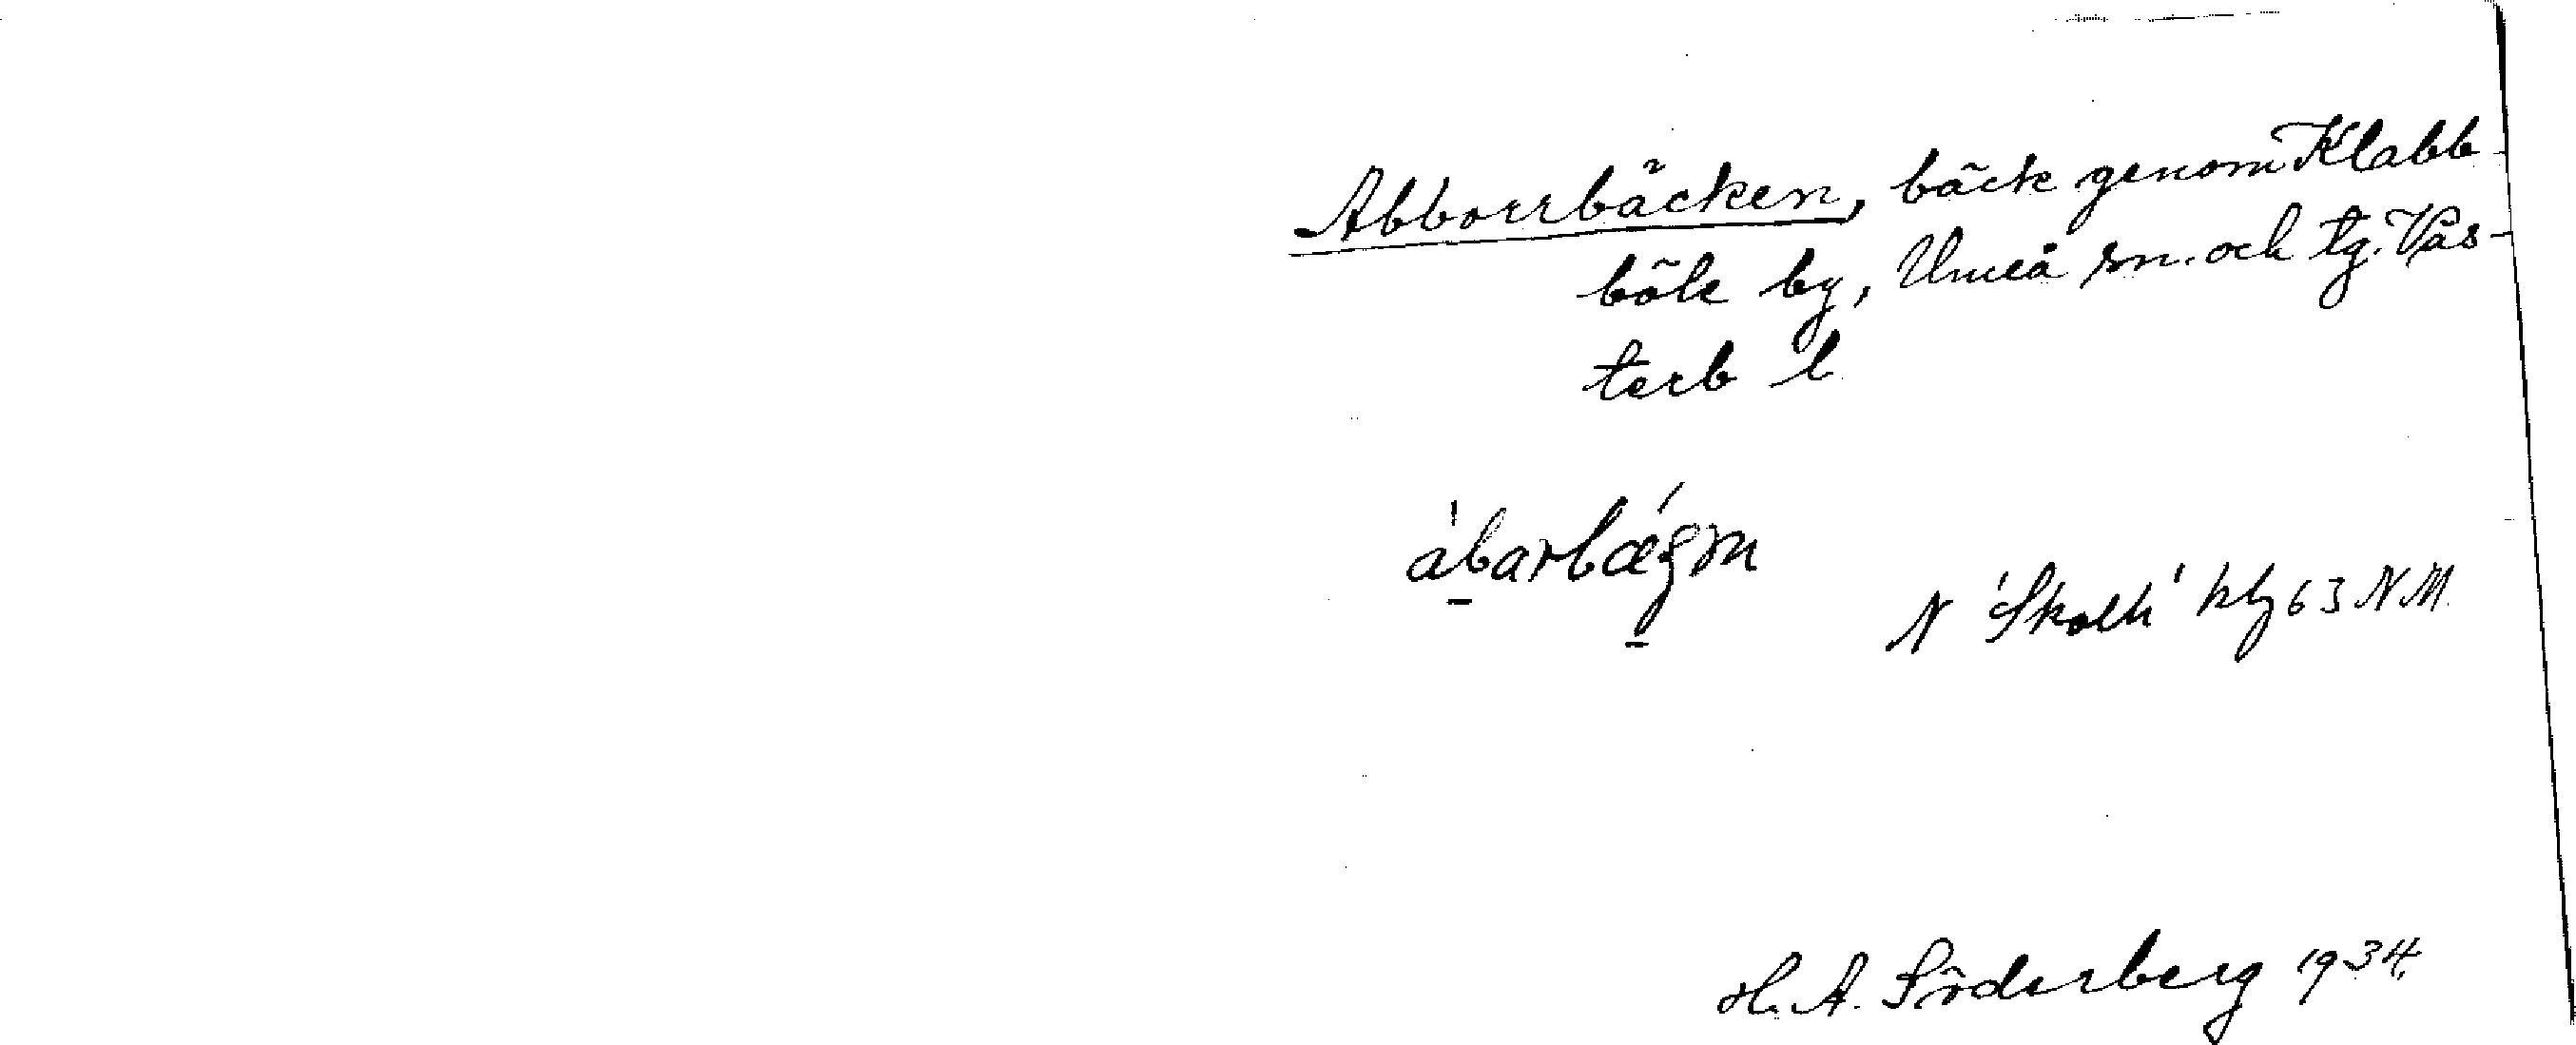 Abborrbäcken, bäck genom Klabb-
böle by, Umeå sn. och tg. Väs-
terb l.
ábarbǽgm
N 63 NM.
H. A. Söderberg 1934.